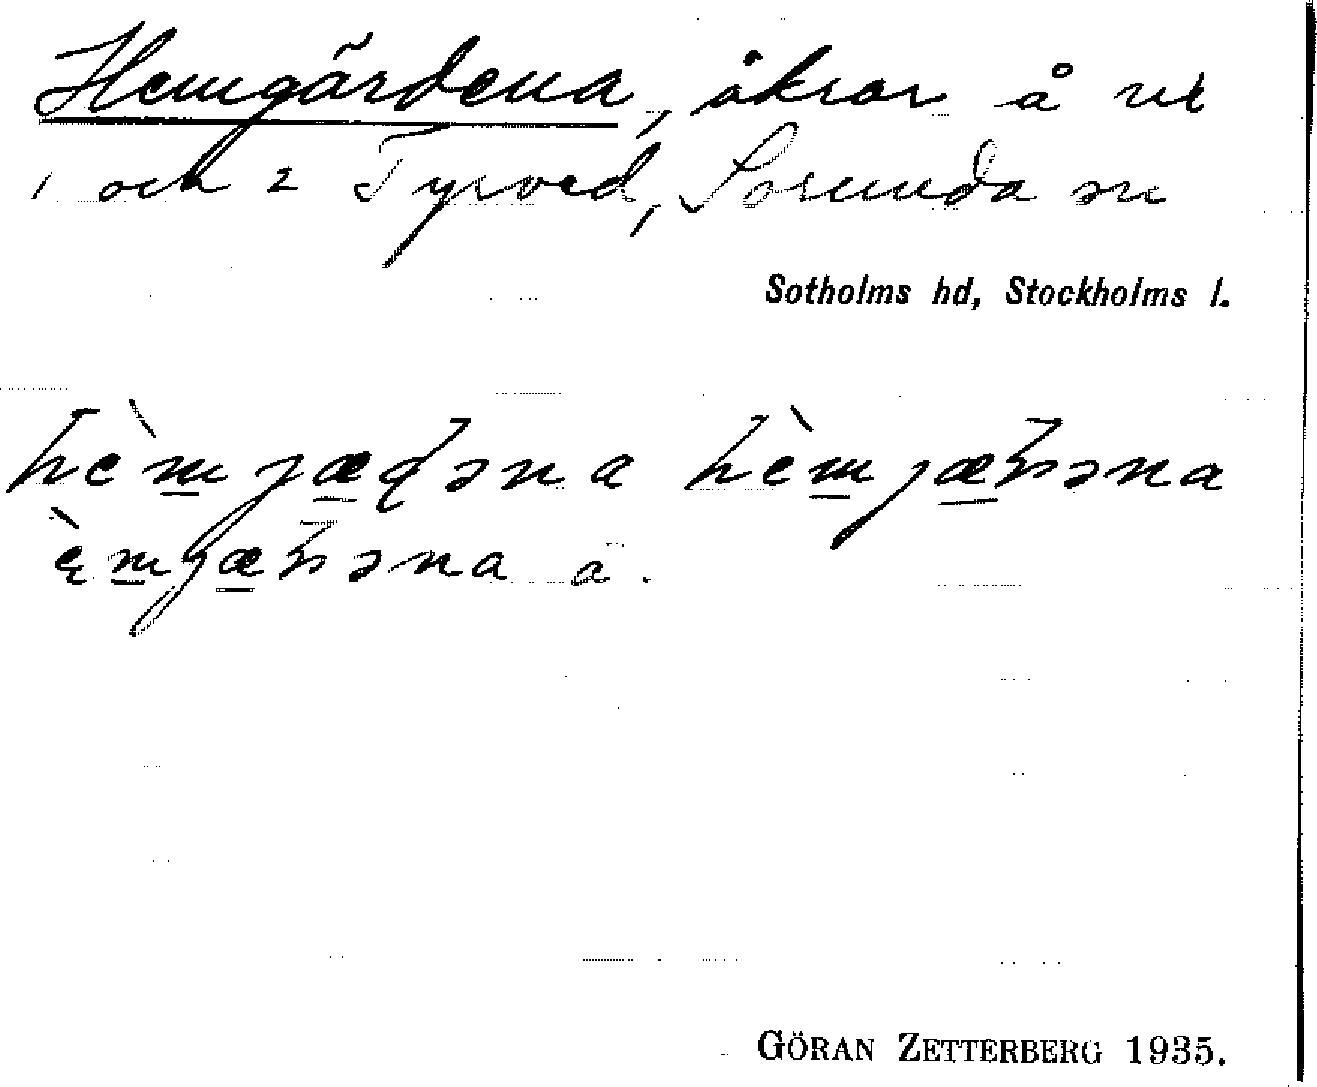 Hemgärdena, åkrar å nr
1 och 2 Tyrved, Sorunda sn
Sotholms hd, Stockholms l.
hèmjæɖəna hèmjæꞛəna
èmjæꞛəna a.
GÖRAN ZETTERBERG 1935.